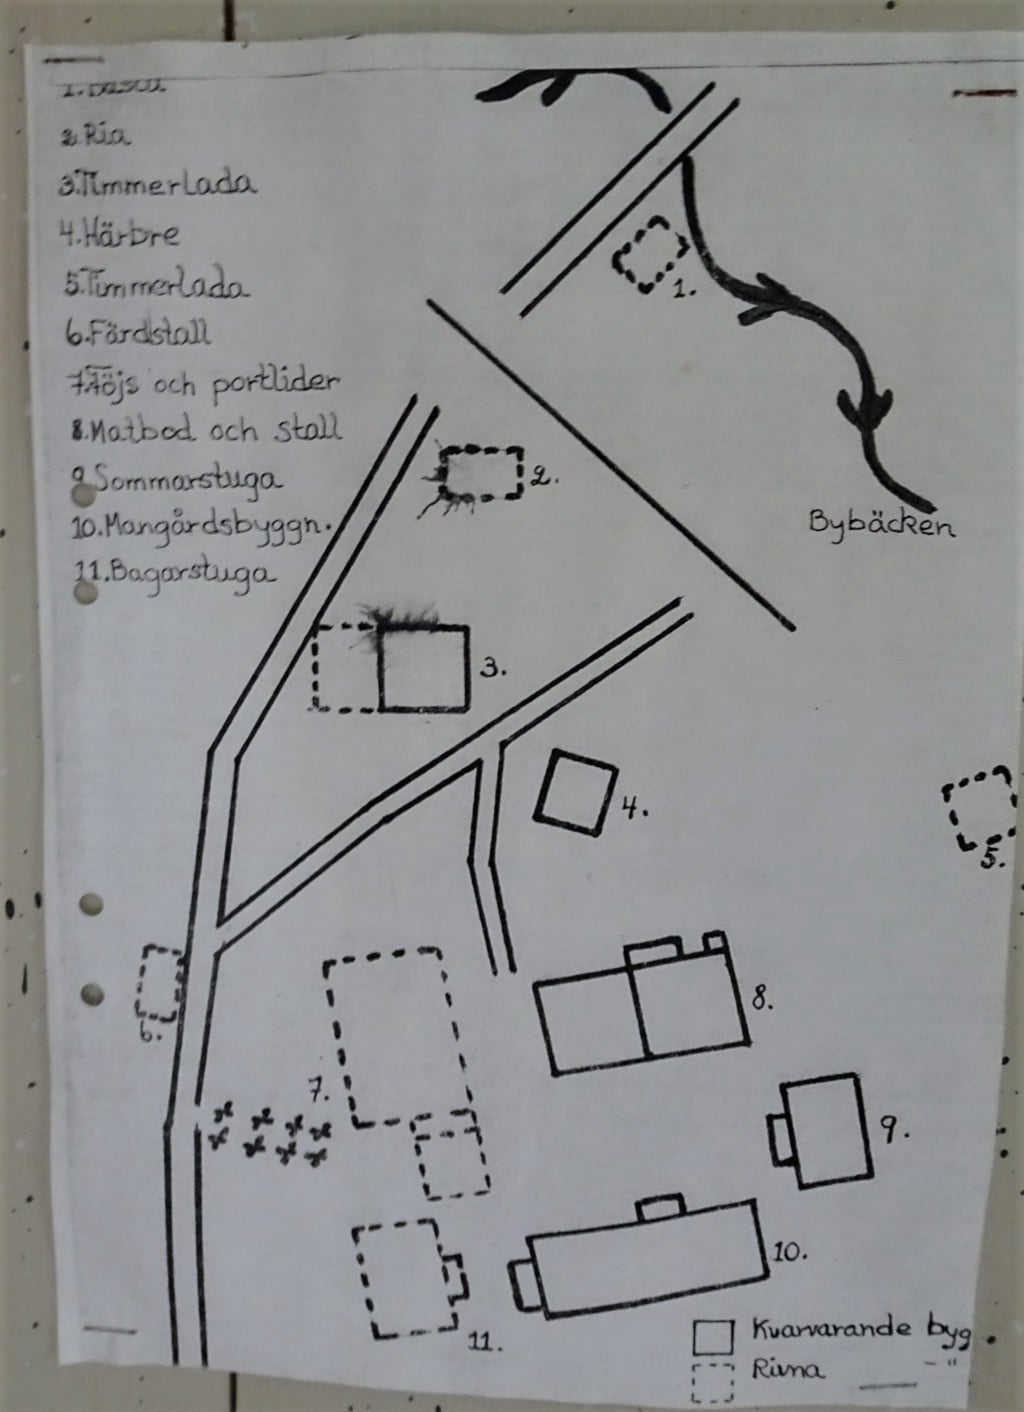 1.Bastu
2.Ria
3.Timmerlada
4.Härbre
5.Timmerlada
6.Färdstall
7.Föjs och portlider
8.Matbod och stall
9.Sommarstuga
10.Mangårdsbyggn.
11.Bagarstuga
1.
2.
Bybäcken
3.
4.
5.
8.
6.
7.
9.
10.
11.
Kvarvarande byg.
Rivna -"-